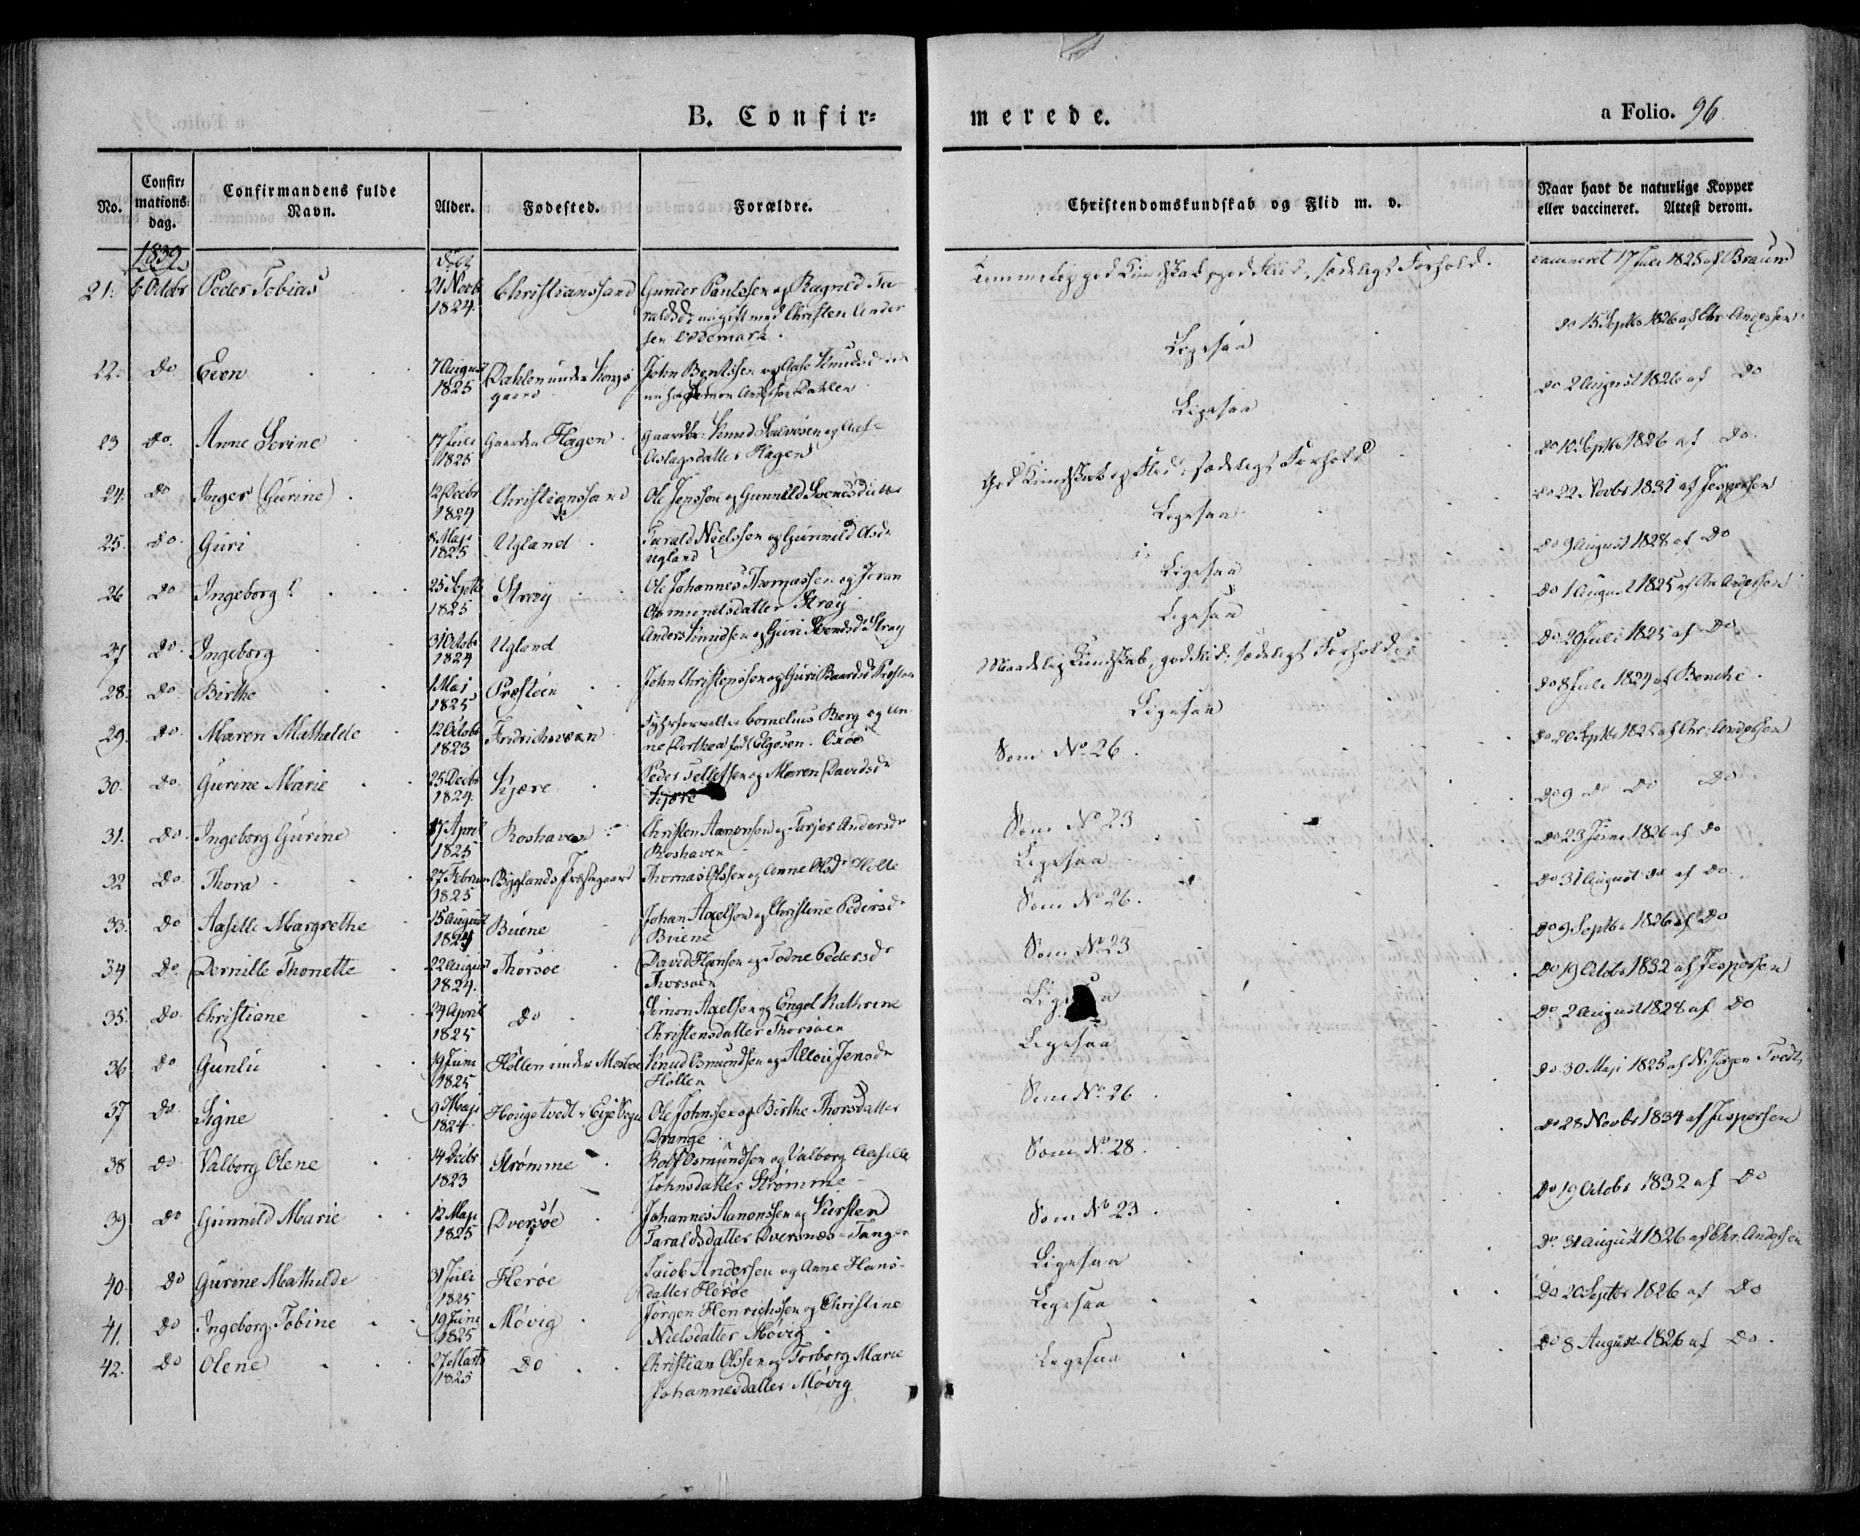 B. Confir=
merede.
a Folio. 96
No.
Confir=
mations=
dag.
Confirmandens fulde
Navn.
Alder.
Fødested.
Forældre.
Christendomskundskab og Flid m. v.
Naar havt de naturlige Kopper
eller vaccineret. Attest derom.
1839
21. 6 Octobr Peder Tobias 21 Novbr 1824. Christianssand Gunder Paulssen og Ragnild Ta
raldsdr nu gift med Christen Ander
sen Oddemark.
Temmelig god Kundskab, god Flid, sædeligt Forhold. vaccineret 17 Juli 1825 af Braun
22. Do Even 7 August 1825 Dahlen under Kongs
gaard John Bentssen og Aase Knudsdatter
Dahlen
Ligesaa Do 15 Septbr 1826 af Chr. Anderssen
23 Do. Anne Serine 17 Juli 1825 Gaarden Hagen Gaardbr. Knud Salvesen og
Aslagsdatter Hagen
Ligesaa Do 2 August 1826 af Do
24. Do Inger (Gurine) 12 Decbr 1824 Christianssand Ole Jenssen og Gunnild Svendsdatter
God Kundskab og Flid, sædeligt Forhold Do 10 Septbr 1826 af Do.
25. Do. Guri 8 Maji 1825 Ugland Tarald Nielssen og Gunnild Olsdr
Ugland
Ligesaa Do 22 Novbr 1831 af Jespersen
26 Do Ingeborg 25 Septbr 1825 Stray Ole Johannes Thomassen og Joran
Osmundsdatter Stray
Ligesaa Do 9 August 1828 af Do
27 Do. Ingeborg 31 Octobr 1824 Ugland Anders Knudsen og Guri Svendsdr Stray
Ligesaa Do 1 August 1825 af Chr. Anderssen
28. Do Birthe 1 Mai 1825 Præstøen John Christenssen og Guri Baardsdr Præstøen
Maadelig Kundskab, god Flid, sædeligt Forhold Do 20 Juli 1825 af Do
29. Do. Maren Mathilde 12 Octobr 1823 Fredrichsværn Fyhrforvalter Cornelius Berg og An
ne Dorthea født Elgesen. Oxøe
Ligesaa Do 8 Juli 1824 af Benche.
30. Do. Gurine Marie 25 Decbr 1824. Kjære Peder Tellefsen og Maren Davidsdr
Kjære
Som No 26. Do 20 Septbr 1825 af Chr. Anderssen
31. Do. Ingeborg Gurine 17 April 1825 Roshaven Christen Aanonsen og Tarjer Andersdr
Roshaven
Som No 23 Do 9 Do Do Do
32 Do Thora 27 Februar 1825 Byglands Præstegaard Thomas Olssen og Anne Olsdr Helle
Ligesaa Do 23 Juni 1826 af Do
33. Do Aasille Margrethe 15 August 1824 Buene Johan Axelsen og Christine Pedersdr
Buene
Som No 26. Do 31 August Do af Do
34 Do. Pernille Thonette 22 August 1824. Thorsøe David Hansen og Todne Pedersdr
Thorsøen
Som No 23 Do 9 Septbr 1826 af Do
35. Do. Christiane 24 April 1825 Do Simon Axelsen og Engel Kathrine
Christensdatter Thorsøen
Ligesaa Do 19 Octobr 1832 af Jespersen
36 Do Gunlu 19 Juni 1825 Hollen under Mosbye Knud Osmundsen og Allou Jensdr
Hollen
Ligesaa Do 2 August 1828 af Do
37 Do. Signe 9 Maji 1824. Hougetvedt i Evje Sogn Ole Johnsen og Birthe Thorsdatter
Drange
Som No 26 Do 30 Maji 1825 af N. Jørgen Tvedt
38 Do Valborg Olene 14 Decbr 1823 Strømme Rolf Osmundsen og Valborg Aasille
Johnsdatter Strømme
Som No. 28. Do 28 Novbr 1834 af Jespersen
39 Do Gunnild Marie 12 Maji 1825 Dversøe Johannes Aanonssen og Kirsten
Taraldsdatter Dversnæs-Tangen
Som No 23. Do 19 Octobr 1832 af Do
40. Do Gurine Mathilde 31 Juli 1825 Flerøe Jacob Andersen og Anne Hans-
datter Flerøe
Ligesaa Do 31 August 1826 af Chr. Anderssen
41. Do Ingeborg Tobine 19 Juni 1825 Møvig Jørgen Henrichssen og Christine
Nielsdatter Møvig
Ligesaa Do 20 Septbr 1826 af Do
42. Do Olene 27 Marts 1825 Do Christian Olssen og Torborg Marie
Johannesdatter Møvig
Ligesaa Do 8 August 1826 af Do.